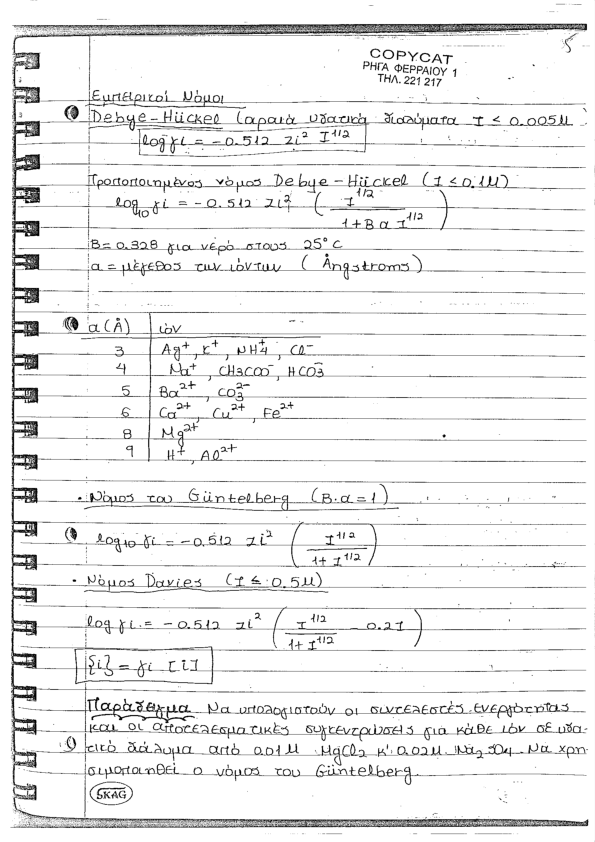 5
COPYCAT
ΡΗΓΑ ΦΕΡΡΑΙΟΥ 1
ΤΗΛ. 221 217
Εμπειρικοί Νόμοι
Debye-Hückel (αραιά υδατικά διαλύματα I ≤ 0.005M
log γi = -0.512 Zi² I^1/2
Τροποποιημένος νόμος Debye-Hückel (I ≤ 0.1M)
log10 γi = -0.512 Zi² (I^1/2 / 1+B α I^1/2)
B = 0.328 για νερό στους 25°C
α = μέγεθος των ιόντων (Ångstroms)
α(Å) ιόν
3 Ag⁺, K⁺, NH4⁺, Cl⁻
4 Na⁺, CH3COO⁻, HCO3⁻
5 Ba²⁺, CO3²⁻
6 Ca²⁺, Cu²⁺, Fe²⁺
8 Mg²⁺
9 H⁺, Al²⁺
• Νόμος του Güntelberg (B·α=1)
log10 γi = -0.512 Zi² (I^1/2 / 1+I^1/2)
• Νόμος Davies (I ≤ 0.5M)
log γi = -0.512 Zi² (I^1/2 / 1+I^1/2 - 0.2I)
{i} = γi [i]
Παράδειγμα Να υπολογιστούν οι συντελεστές ενεργότητας
και οι αποτελεσματικές συγκεντρώσεις για κάθε ιόν σε υδα-
τικό διάλυμα από 0.01M MgCl2 κ' 0.02M Na2SO4. Να χρη-
σιμοποιηθεί ο νόμος του Güntelberg.
SKAG